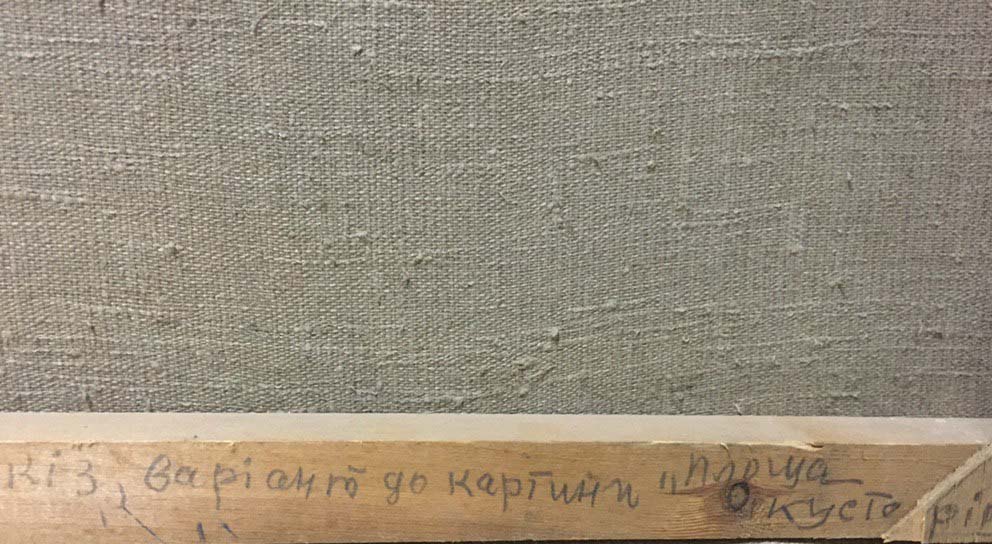 кіз, варіант до картини "Площа
кусто рів